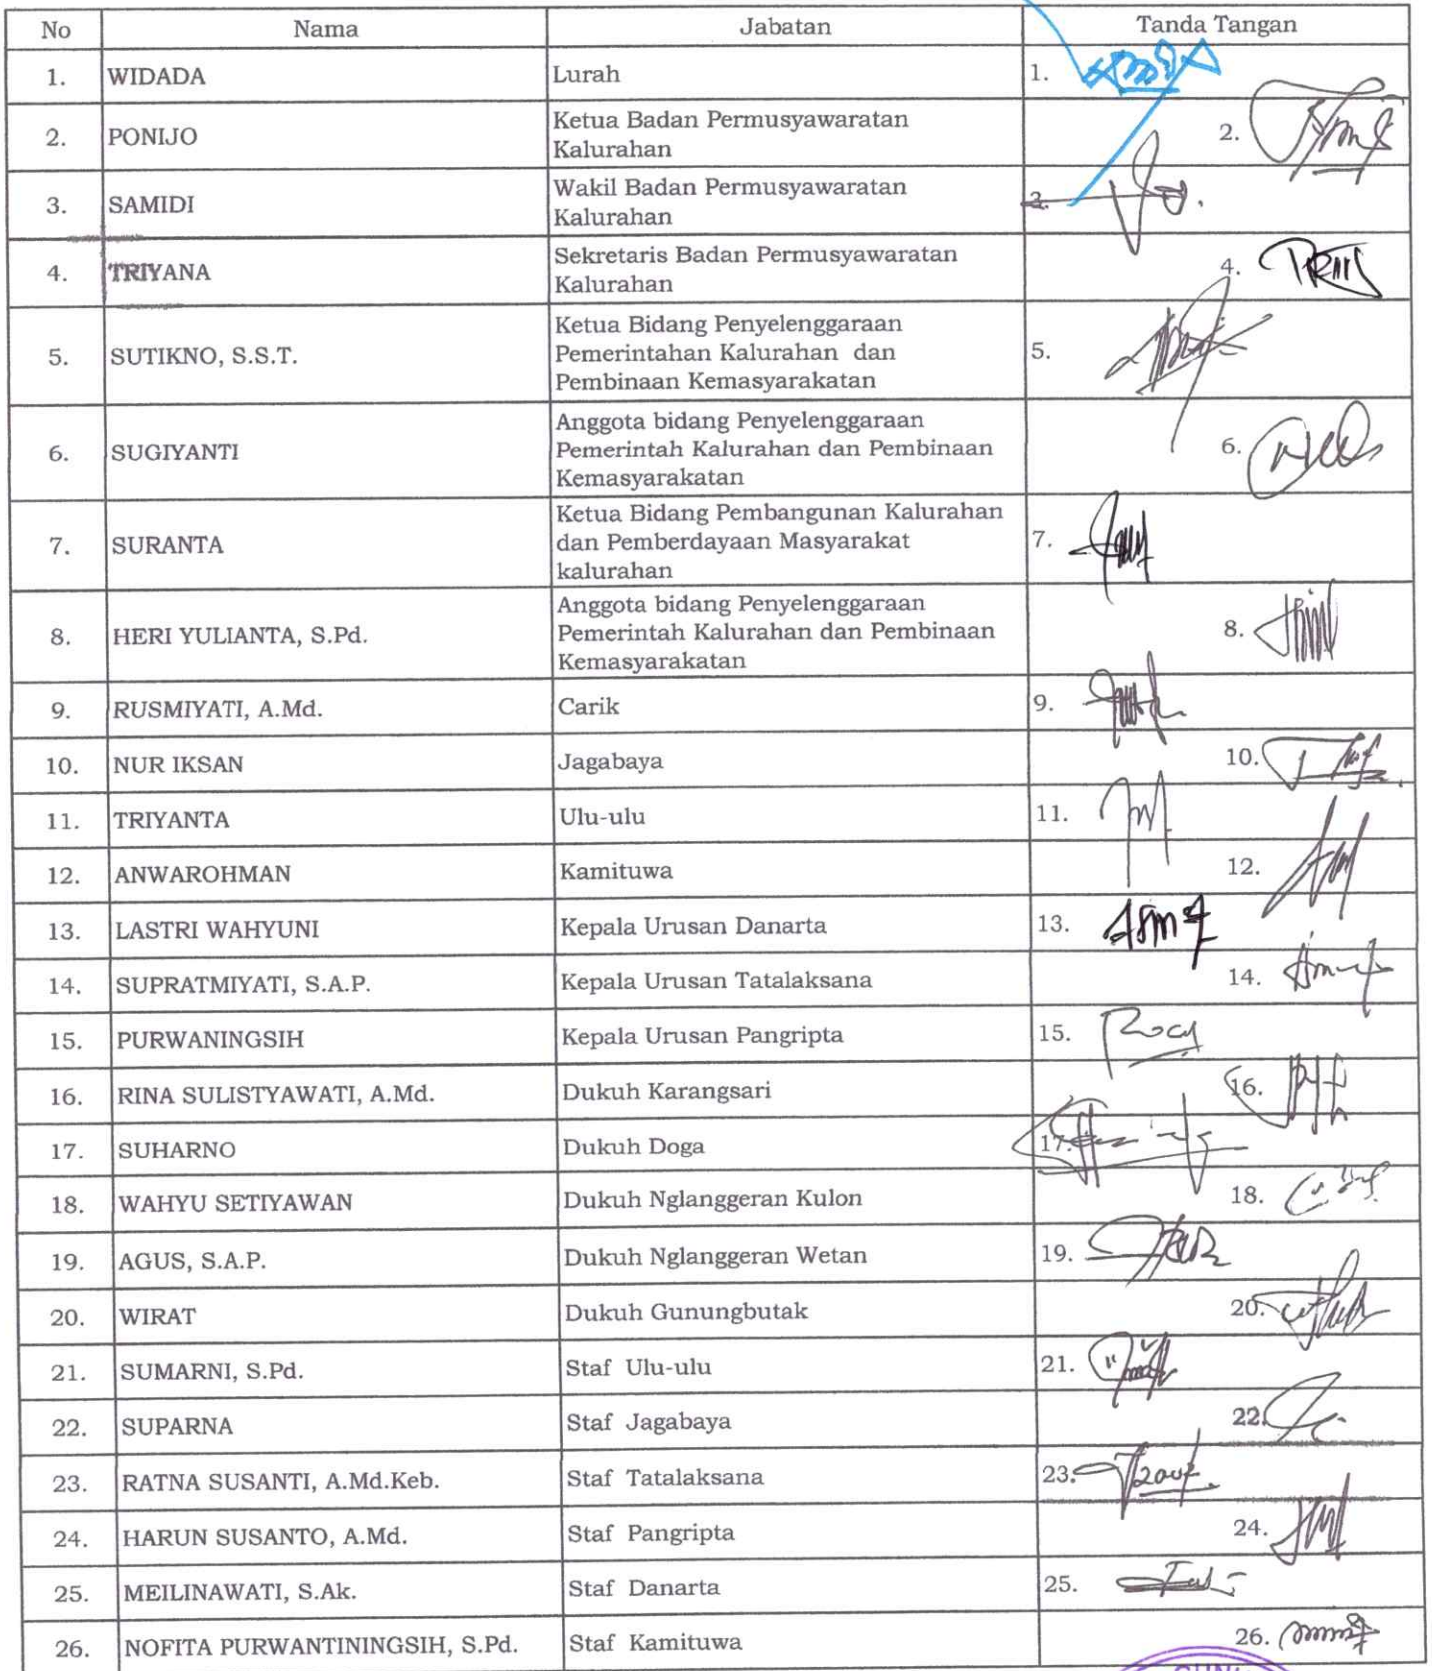 No Nama Jabatan Tanda Tangan
1. WIDADA Lurah 1.
2. PONIJO Ketua Badan Permusyawaratan 2.
Kalurahan
3. SAMIDI Wakil Badan Permusyawaratan 3.
Kalurahan
4. TRIYANA Sekretaris Badan Permusyawaratan 4.
Kalurahan
5. SUTIKNO, S.S.T. Ketua Bidang Penyelenggaraan 5.
Pemerintahan Kalurahan dan
Pembinaan Kemasyarakatan
6. SUGIYANTI Anggota bidang Penyelenggaraan 6.
Pemerintah Kalurahan dan Pembinaan
Kemasyarakatan
7. SURANTA Ketua Bidang Pembangunan Kalurahan 7.
dan Pemberdayaan Masyarakat
kalurahan
8. HERI YULIANTA, S.Pd. Anggota bidang Penyelenggaraan 8.
Pemerintah Kalurahan dan Pembinaan
Kemasyarakatan
9. RUSMIYATI, A.Md. Carik 9.
10. NUR IKSAN Jagabaya 10.
11. TRIYANTA Ulu-ulu 11.
12. ANWAROHMAN Kamituwa 12.
13. LASTRI WAHYUNI Kepala Urusan Danarta 13.
14. SUPRATMIYATI, S.A.P. Kepala Urusan Tatalaksana 14.
15. PURWANINGSIH Kepala Urusan Pangripta 15.
16. RINA SULISTYAWATI, A.Md. Dukuh Karangsari 16.
17. SUHARNO Dukuh Doga 17.
18. WAHYU SETIYAWAN Dukuh Nglanggeran Kulon 18.
19. AGUS, S.A.P. Dukuh Nglanggeran Wetan 19.
20. WIRAT Dukuh Gunungbutak 20.
21. SUMARNI, S.Pd. Staf Ulu-ulu 21.
22. SUPARNA Staf Jagabaya 22.
23. RATNA SUSANTI, A.Md.Keb. Staf Tatalaksana 23.
24. HARUN SUSANTO, A.Md. Staf Pangripta 24.
25. MEILINAWATI, S.Ak. Staf Danarta 25.
26. NOFITA PURWANTININGSIH, S.Pd. Staf Kamituwa 26.